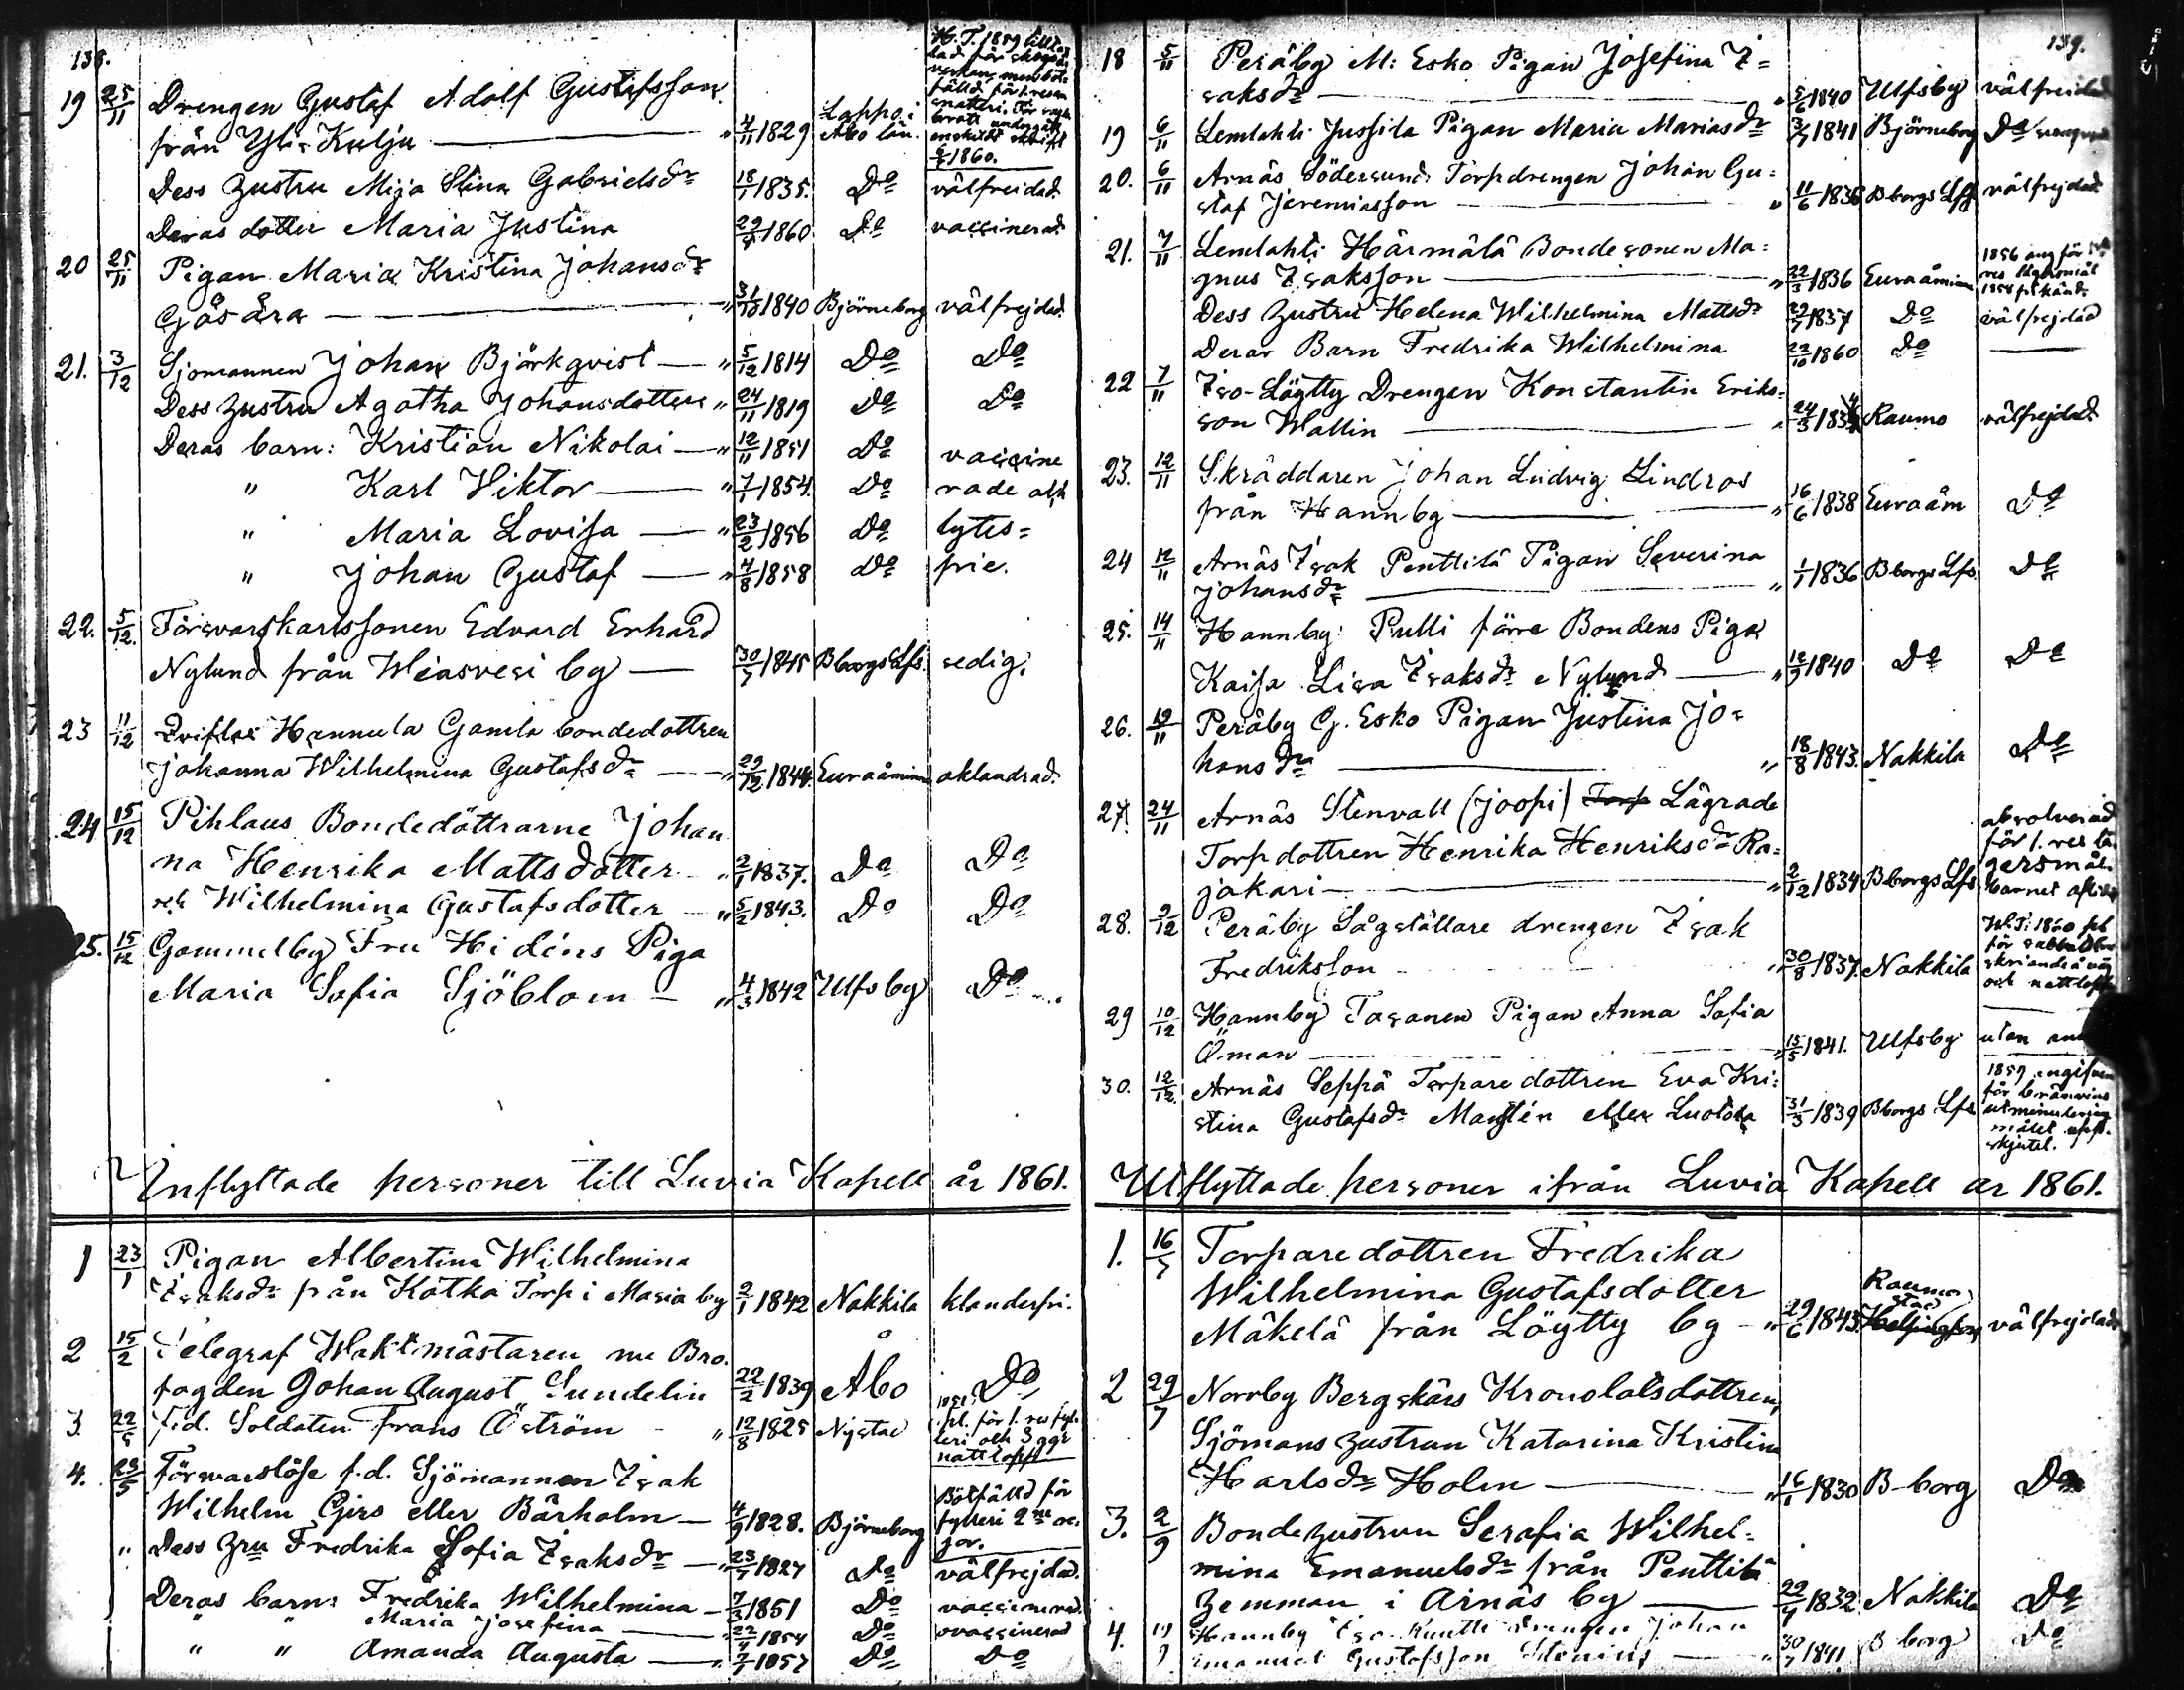 138.
19 25/11 Drengen Gustaf Adolf Gustafsson
från Yli-Kulju — " 4/11 1829 Lappo i Åbo län.
H.T. 1859
enskildt
1860.
Dess hustru Maja Stina Gabrielsdr 18/1 1835. Do välfrejdad.
Deras dotter Maria Justina 29/4 1860 Do vaccinerad.
20 25/11 Pigan Maria Kristina Johansdr
Gåsåra — " 31/10 1840 Björneborg välfrejdad.
21. 3/12 Sjömannen Johan Björkqvist — " 5/12 1814 Do Do
Dess hustru Agatha Johansdotter " 24/11 1819 Do Do
Deras barn: Kristian Nikolai — " 12/11 1851 Do vaccine
" Karl Viktor — " 7/1 1854 Do rade och
" Maria Lovisa — " 23/2 1856 Do lytes=
" Johan Gustaf — " 4/8 1858 Do frie.
22. 5/12 Försvarskarlssonen Edvard Erhard
Nylund från Wiasvesi by — 30/3 1845 Bborgs Lfs. sedig.
23 11/12 Hannula Gamla bondedottren
Johanna Wilhelmina Gustafsdr — " 29/12 1844. Euraåminne oklandrad.
24 15/12 Pihlaus Bondedöttrarne Johan
na Henrika Mattsdotter " 2/1 1837. Do Do
och Wilhelmina Gustafsdotter — " 5/2 1843. Do Do
25. 15/12 Gammelby Fru Hidéns Piga
Maria Sofia Sjöblom — " 4/3 1842 Ulfsby Do
Inflyttade personer till Luvia Kapell år 1861.
1 23/1 Pigan Albertina Wilhelmina
Isaksdr från Katka Torp i Maria by 2/1 1842 Nakkila klanderfri.
2 15/2 Telegraf Waktmästaren nu Bro
fogden Johan August Sundelin 22/2 1839 Åbo Do
3. 22/5 f.d. Soldaten Frans Öström — " 12/8 1825 Nystad
för 1. res fyl-
leri och 3 ggr
nattlopp.
4. 23/5 Förswarslöse f.d. Sjömannen Isak
Wilhelm Girs eller Bärholm — 4/9 1828. Björneborg Bötfälld för
fylleri 2ne re-
sor.
" Dess Hru Fredrika Sofia Isaksdr — " 23/5 1827 Do välfrejdad.
Deras barn: Fredrika Wilhelmina — 7/3 1851 Do vaccinerad.
" " Maria Josefina — 22/4 1854 Do ovaccinerad
" " Amanda Augusta — 1857 Do Do
139.
18 5/11 Peräby M: Esko Pigan Josefina I=
saksdr — " 5/6 1840 Ulfsby välfrejdad
19 6/11 Lemlahti Jussila Pigan Maria Mariasdr 3/5 1841 Björneborg Do
20. 6/11 Arnäs Södersund Torpdrengen Johan Gu=
staf Jeremiasson — " 11/6 1836 Bborgs Lfs välfrejdad.
21. 7/11 Lemlahti Härmälä Bondesonen Ma=
gnus Isaksson — " 22/3 1836 Euraåminne 1856 ang för 1sta
res lägersmål
Dess hustru Helena Wilhelmina Mattsdr 29/7 1837 Do välfrejdad
Deras Barn Fredrika Wilhelmina 22/10 1860 Do —
22 7/11 Iso-Löytty Drengen Konstantin Eriks=
son Wallin — " 24/3 Raumo välfrejdad.
23. 12/11 Skräddaren Johan Ludvig Lindros
från Hannby — " 16/6 1838 Euraåm Do
24 12/11 Arnäs Isak Penttilä Pigan Severina
Johansdr — " 1/1 1836 Bborgs Lfs Do
25. 14/11 Hannby Pulli förre Bondens Piga
Kaisa Lisa Isaksdr Nylund — " 12/9 1840 Do Do
26. 19/11 Peräby G. Esko Pigan Justina Jo=
hansdr — " 18/8 1843. Nakkila Do
27. 24/11 Arnäs Stenvall (Joopi) Torp Lägrade
Torpdottren Henrika Henriksdr Ra=
jakari — " 2/12 1834 Bborgs Lfs absolverad
för 1. res lä
gersmål.
barnet aflidit
28. 9/12 Peräby Sågställare drengen Isak
Fredriksson — " 30/8 1837. Nakkila
W.T. 1860
för
skriande å väg
och nattlopp
29 10/12 Hannby Tasanen Pigan Anna Sofia
Öman — " 15/5 1841. Ulfsby utan
30. 12/12 Arnäs Seppä Torparedottren Eva Kri=
stina Gustafsdr Mantén eller Luotola 31/3 1839 Bborgs Lfs 1859 angifven
för bränvins
utminutering
målet upp-
skjutet.
Utflyttade personer ifrån Luvia Kapell år 1861.
1. 16/5 Torparedottren Fredrika
Wilhelmina Gustafsdotter
Mäkelä från Löytty by — " 29/6 1843. Raumo stad Helsingfors välfrejdad
2 29/7 Norrby Bergskärs Kronolotsdottren,
Sjömanshustrun Katarina Kristina
Karlsdr Holm — " 16/1 1830 B-borg Do
3. 2/9 Bondehustrun Serafia Wilhel=
mina Emanuelsdr från Penttilä
hemman i Arnäs by — 29/4 1832 Nakkila Do
4. Hannby Iso drengen Johan
Emanuel Gustafsson Stenius — " 30/7 1841 B-borg Do